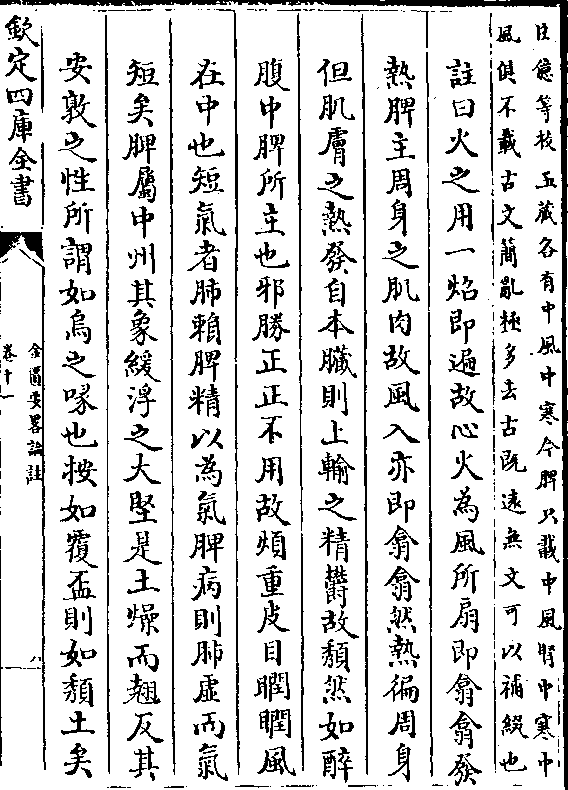 臣億等校五藏各有中風中寒今脾只載中風腎中寒中
風俱不載古文簡亂極多去古既遠無文可以補綴也
註曰火之用一焰即遍故心火為風所扇即翕翕發
熱脾主周身之肌肉故風入亦即翕翕然熱徧周身
但肌膚之熱發自本臟則上輸之精鬱故頽然如醉
腹中脾所主也邪勝正正不用故煩重皮目瞤瞤風
在中也短氣者肺賴脾精以為氣脾病則肺虛而氣
短矣脾屬中州其象緩浮之大堅是土燥而翹反其
安敦之性所謂如烏之啄也按如覆盃則如頽土矣
欽定四庫全書
金匱要略論註
卷十一
八